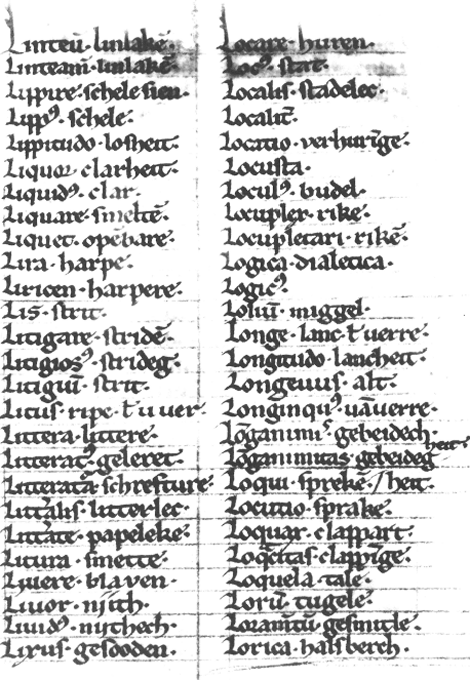 Linteū · linlakē ·
Linteam̄ · linlakē ·
Lippire · schele sien ·
Lippꝰ · schele ·
Lippitudo · losheit ·
Liquor clarheit ·
Liquidꝰ · clar ·
Liquare · smeltē ·
Liquet · opēbare ·
Lira · harpe ·
Liricen · harpere ·
Lis · strit ·
Litigare · stridē ·
Litigiosꝰ · strideg ·
Litigiū · strit ·
Litus · ripe · ł · u uer ·
Littera · littere ·
Litteratꝰ · geleret ·
Litterat̄a · schrefture
Litt̄alis · litterlec ·
Litt̄ate · papeleke ·
Litura · smette ·
Liuere · blaven ·
Liuor · nijth ·
Liuidꝰ · nijthech ·
Lixus · gesdoden ·
Locare · huren ·
Locꝰ · stat ·
Localis · stadelec ·
Localit̄ ·
Locatio · verhurīge ·
Locusta ·
Loculꝰ · budel ·
Locupler · rike ·
Locupletari · rikē ·
Logica · dialetica ·
Logicꝰ ·
Loliū · miggel ·
Longe · lanc · ł uerre ·
Longitudo · lancheit ·
Longeuus · alt ·
Longinquꝰ · uāuerre ·
Lōganimiˢ · gebeidech ·
Lōganimitas · gebeideg heit ·
Loqui · sprekē · / heit ·
Locutio · sprake ·
Loquax · clappart ·
Loq̄citas · clappīge ·
Loquela · tale ·
Lorū · tugele ·
Loram̄tū · gesmitle ·
Lorica · halsberch ·